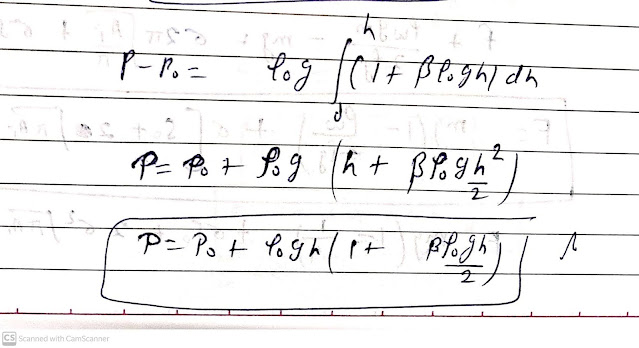 P-P₀ = ρ₀g ∫₀ʰ (1+ βρ₀gh) dh
P = P₀ + ρ₀g (h + βρ₀gh²/2)
P = P₀ + ρ₀gh (1 + βρ₀gh/2)
CS Scanned with CamScanner